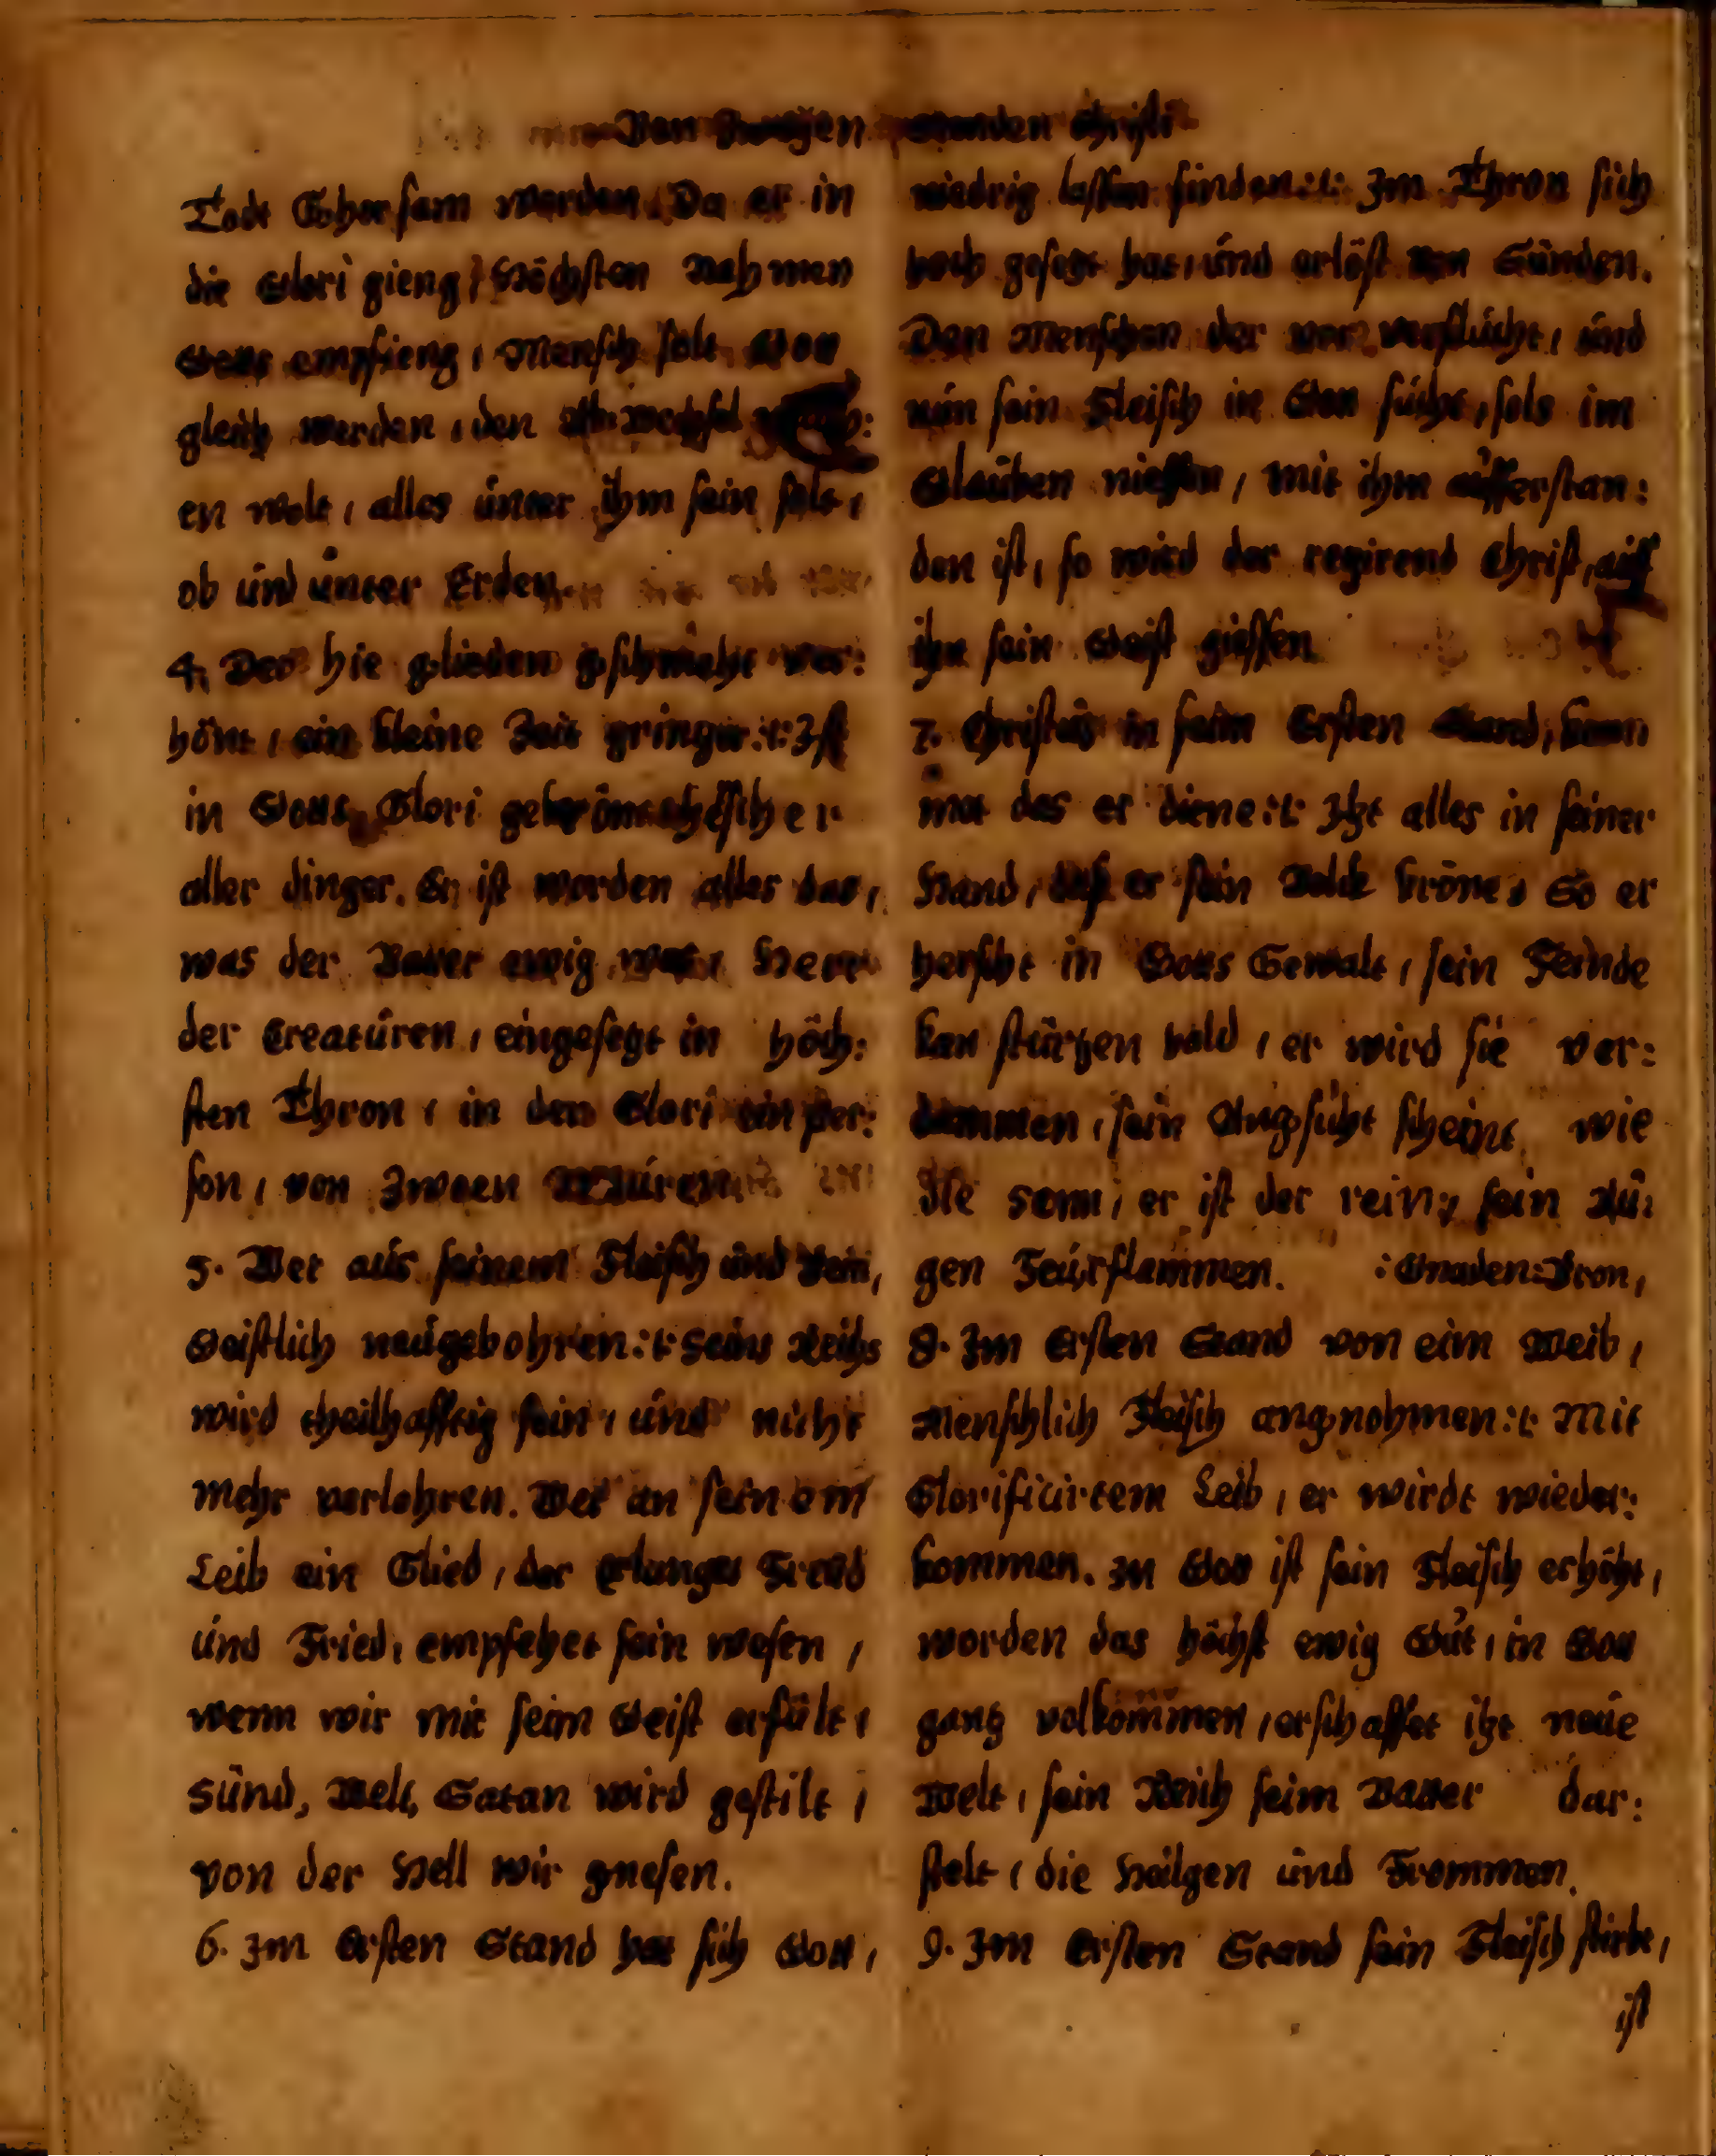 Von Zweyen Standen Christi
Todt Ghorsam worden, Da er in
die Glori gieng, Höchsten Nahmen
Gotts empfieng, Mensch solt Gott
gleich werden, den
en wolt, alles únter ihm sein solt,
ob únd únter Erden.
4. Der hie glieden gschmeht ver:
hönt, ein kleine Zeit gringer :t: Ist
in Gotts Glori gekrönt
aller dinger. Er ist worden alles das,
was der Vatter ewig was, Herr
der Creatúren, eingesetzt in höch:
sten Thron, in den Glori ein per:
son, von Zween Natúren.
5. Wer aús seinem Fleisch únd Bein,
Geistlich neúgebohren :t: Seins Reichs
wird theilhafftig sein, únd nicht
mehr verlohren. Wer an seinem
Leib ein Glied, der erlanget Freúd
únd Fried, empfehet sein wesen,
wenn wir mit seim Geist erfült,
Sünd, Welt, Satan wird gestilt,
von der Hell wir gnesen.
6. Im Ersten Stand hat sich Gott,
niedrig lassen finden :t: Im Thron sich
hoch gesetzt hat, únd erlöst von Sünden.
Den Menschen der war verflúcht, únd
nún sein Fleisch in Gott súcht, sols im
Glaúben niessen, mit ihm aúfferstan:
den ist, so wird der regirend Christ, aúff
ihn sein Geist giessen.
7. Christús in seim Ersten Stand, kam
nút das er diene :t: Itzt alles in seiner
Hand, daß er sein Volck kröne, So er
herscht in Gotts Gewalt, sein Feinde
kan stürtzen bald, er wird sie ver:
dammen, sein Angsicht scheint wie
die Sonn, er ist der rein, sein Aú:
gen Feúrflammen. :Gnaden:Thron,
8. Im Ersten Stand von eim Weib,
Menschlich Fleisch angnohmen :t: Mit
Glorificirtem Leib, er wirdt wieder:
kommen. In Gott ist sein Fleisch erhöht,
worden das höchst ewig Gút, in Gott
gantz volkommen, erschaffet itzt neúe
Welt, sein Reich seim Vatter dar:
stelt, die Heilgen únd Frommen.
9. Im Ersten Stand sein Fleisch stirbt,
ist